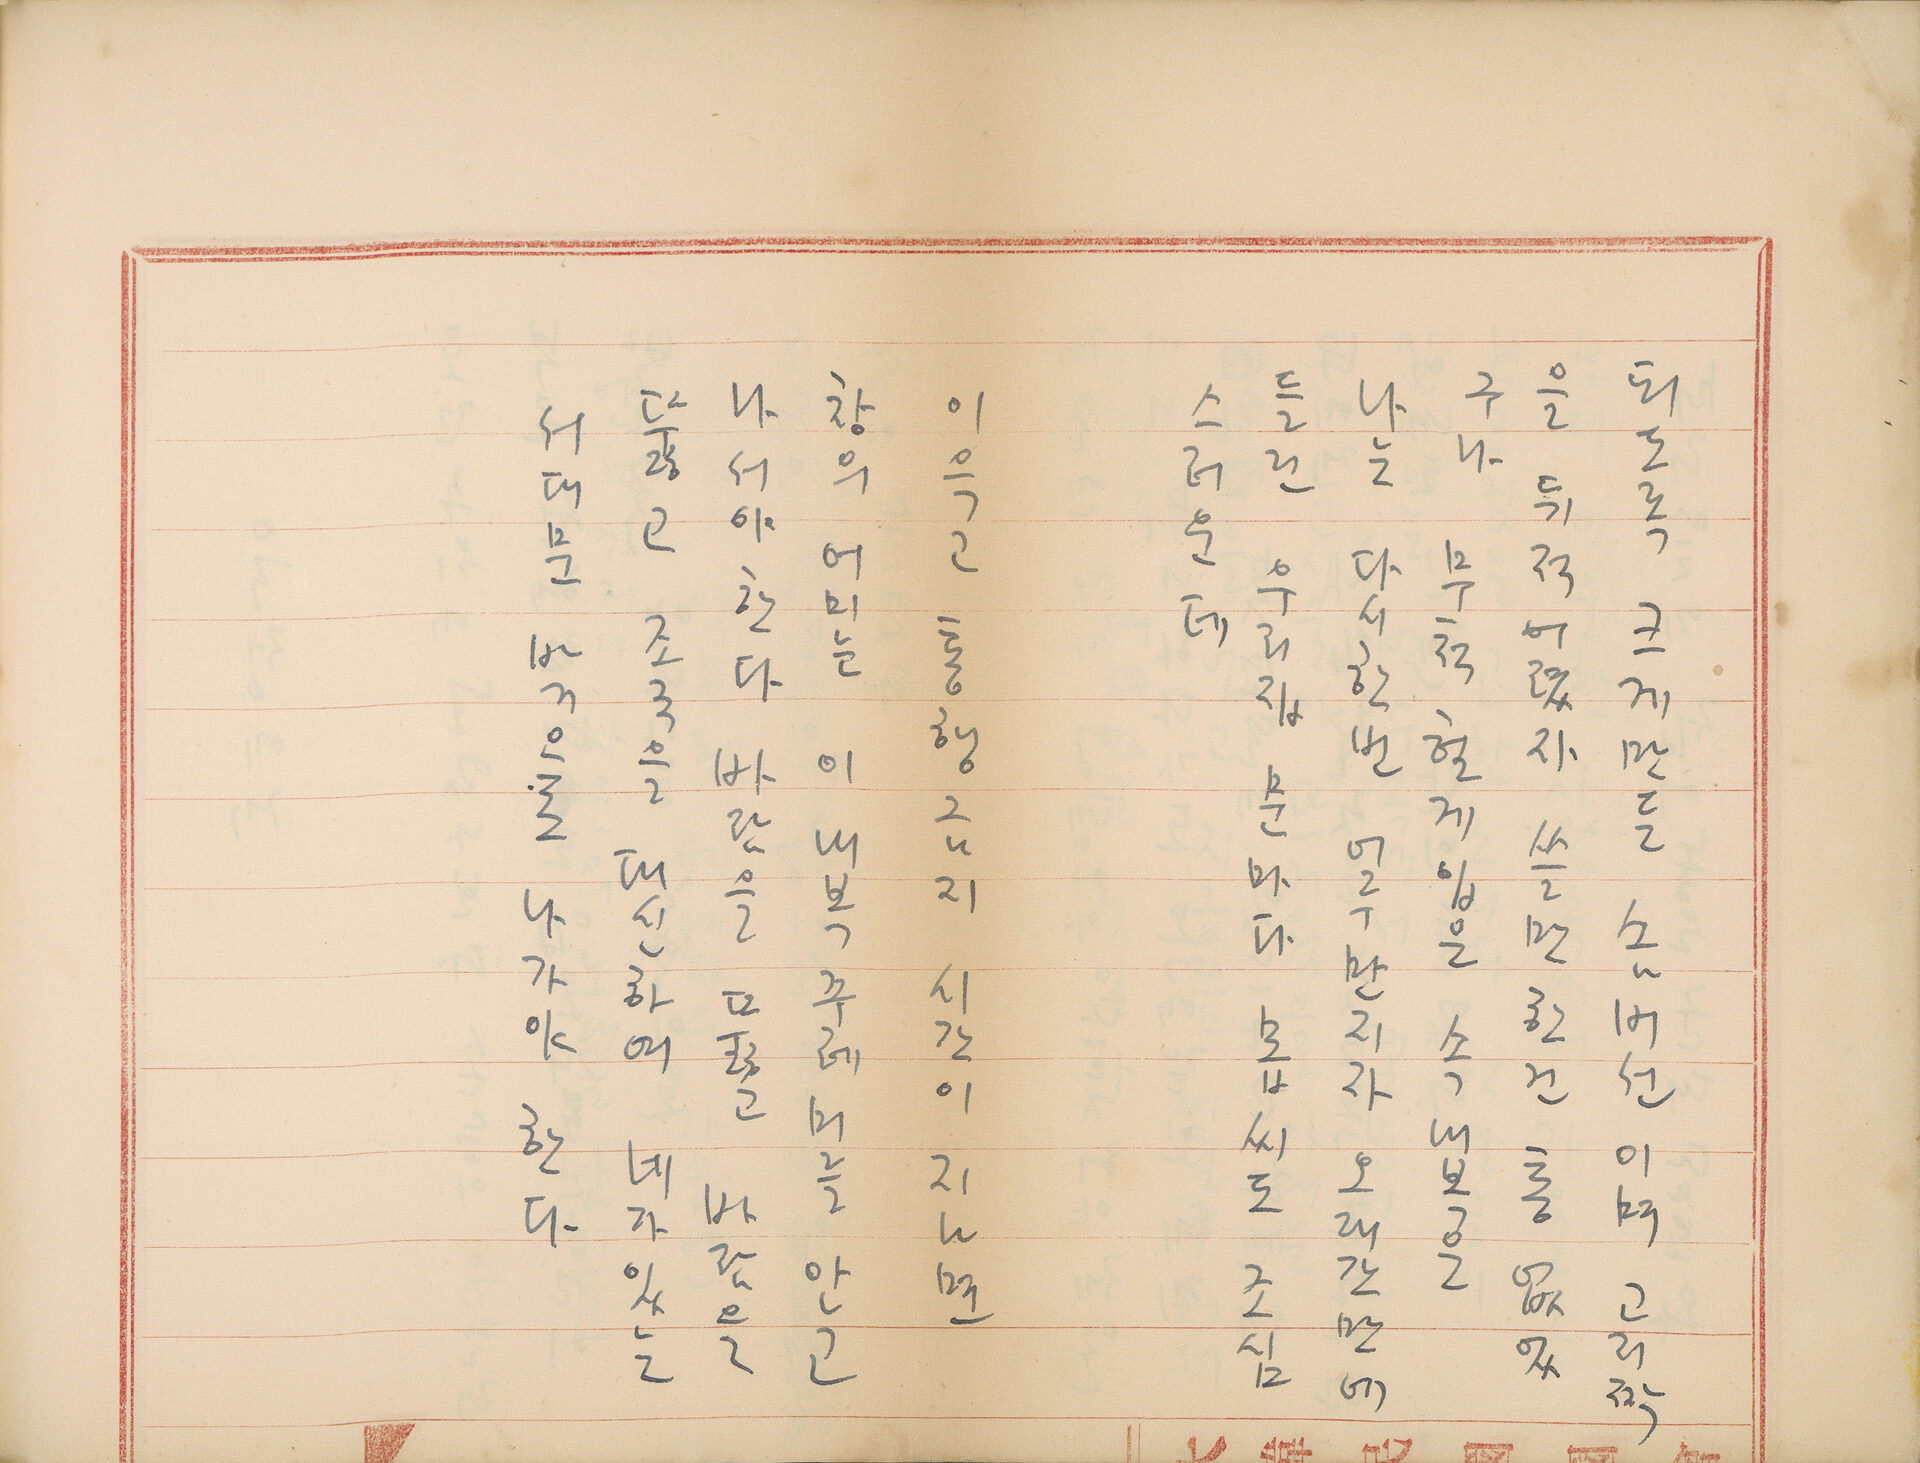 되도록 크게만들 솜버선 이며 고리짝
을 뒤적어렸자 쓸만한건 통 없었
구나 무척 헐게입은
나는 다시한번 얼구만지자 오래간만에
들린 우리집 문마다 몹씨도 조심
스러운데
이윽고 통행금지 시간이 지나면
창의 어미는 이 내복꾸레미를 안고
나서야 한다 바람을 뚫고 바람을
뚫고 조국을 대신하여 네가있는
서대문 나가야 한다